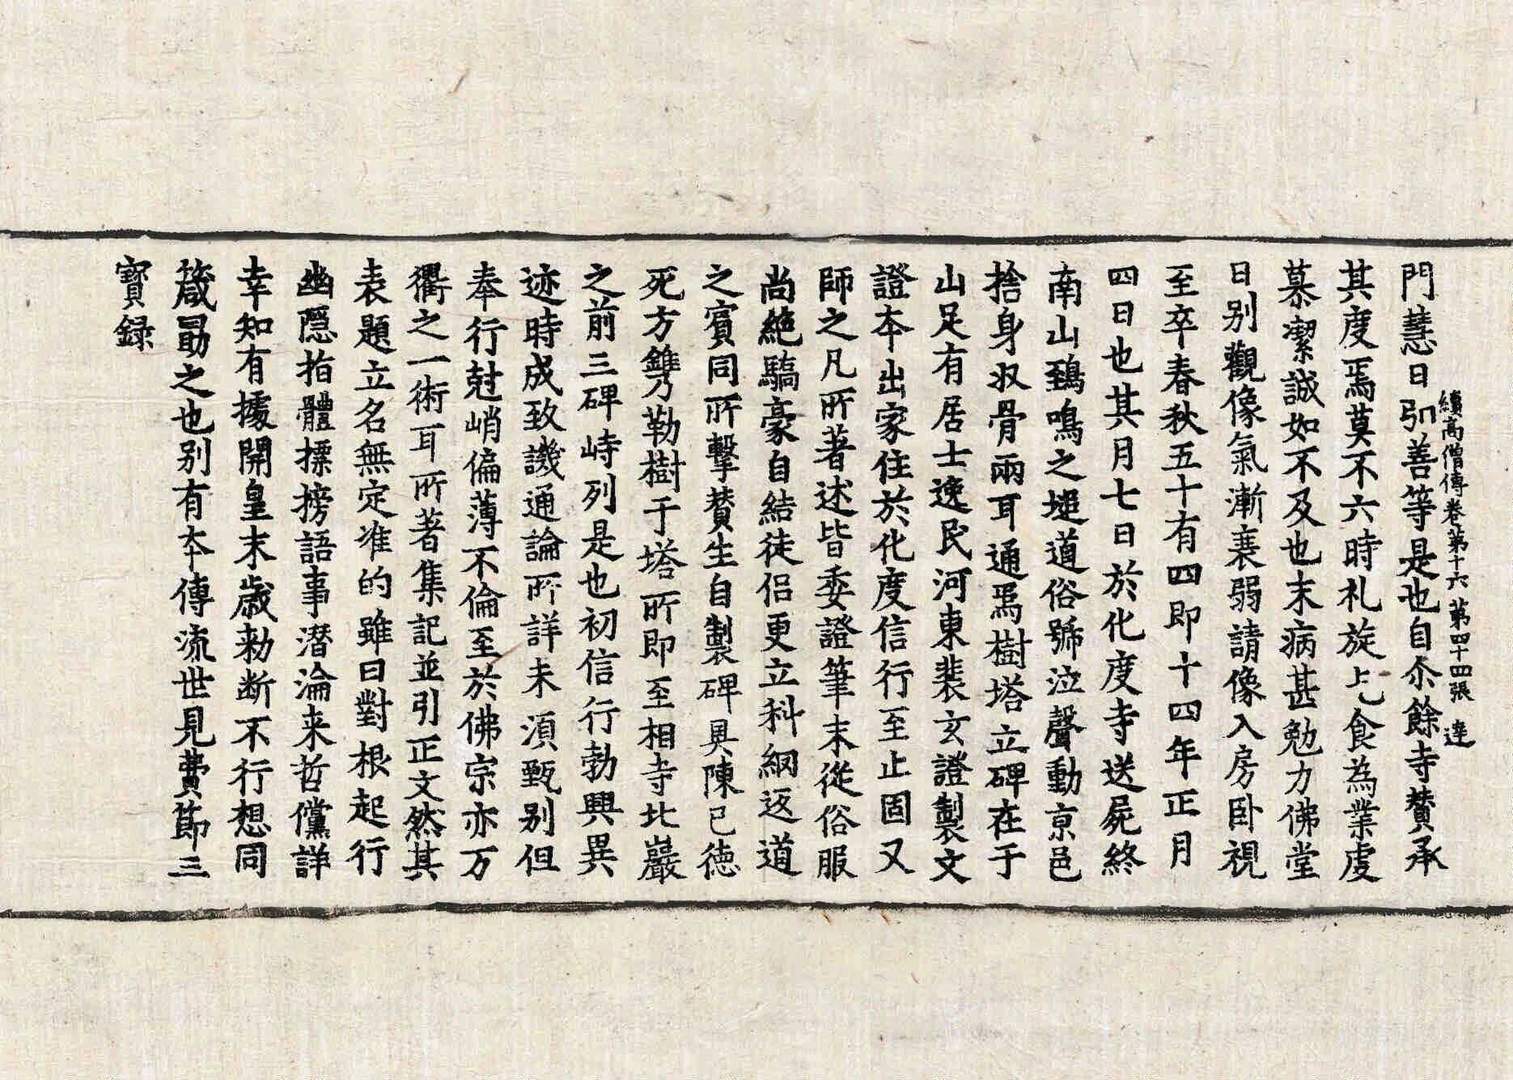 續高僧傳卷第十六 第四十四張 達
門慧日引善等是也自尒餘寺賛承
其度焉莫不六時礼旋乞食為業虔
慕潔誠如不及也末病甚勉力佛堂
日别觀像氣漸衰弱請像入房卧視
至卒春秋五十有四即十四年正月
四日也其月七日於化度寺送屍終
南山鵄鳴之塠道俗號泣聲動京邑
捨身収骨兩耳通焉樹塔立碑在于
山足有居士逸民河東裴玄證製文
證夲出家住於化度信行至止固又
師之凡所著述皆委證筆末從俗服
尚絶驕豪自結徒侣更立科綱返道
之賓同所擊賛生自製碑具陳已徳
死方鐫勒樹于塔所即至相寺北巖
之前三碑峙列是也初信行勃興異
迹時成致譏通論所詳未湏甄别但
奉行尅峭偏薄不倫至於佛宗亦万
衢之一術耳所著集記並引正文然其
表題立名無定准的雖曰對根起行
幽隱指體摽牓語事潜淪来哲儻詳
幸知有據開皇末歳勑断不行想同
箴勗之也别有夲傳流世見費莭三
寳録